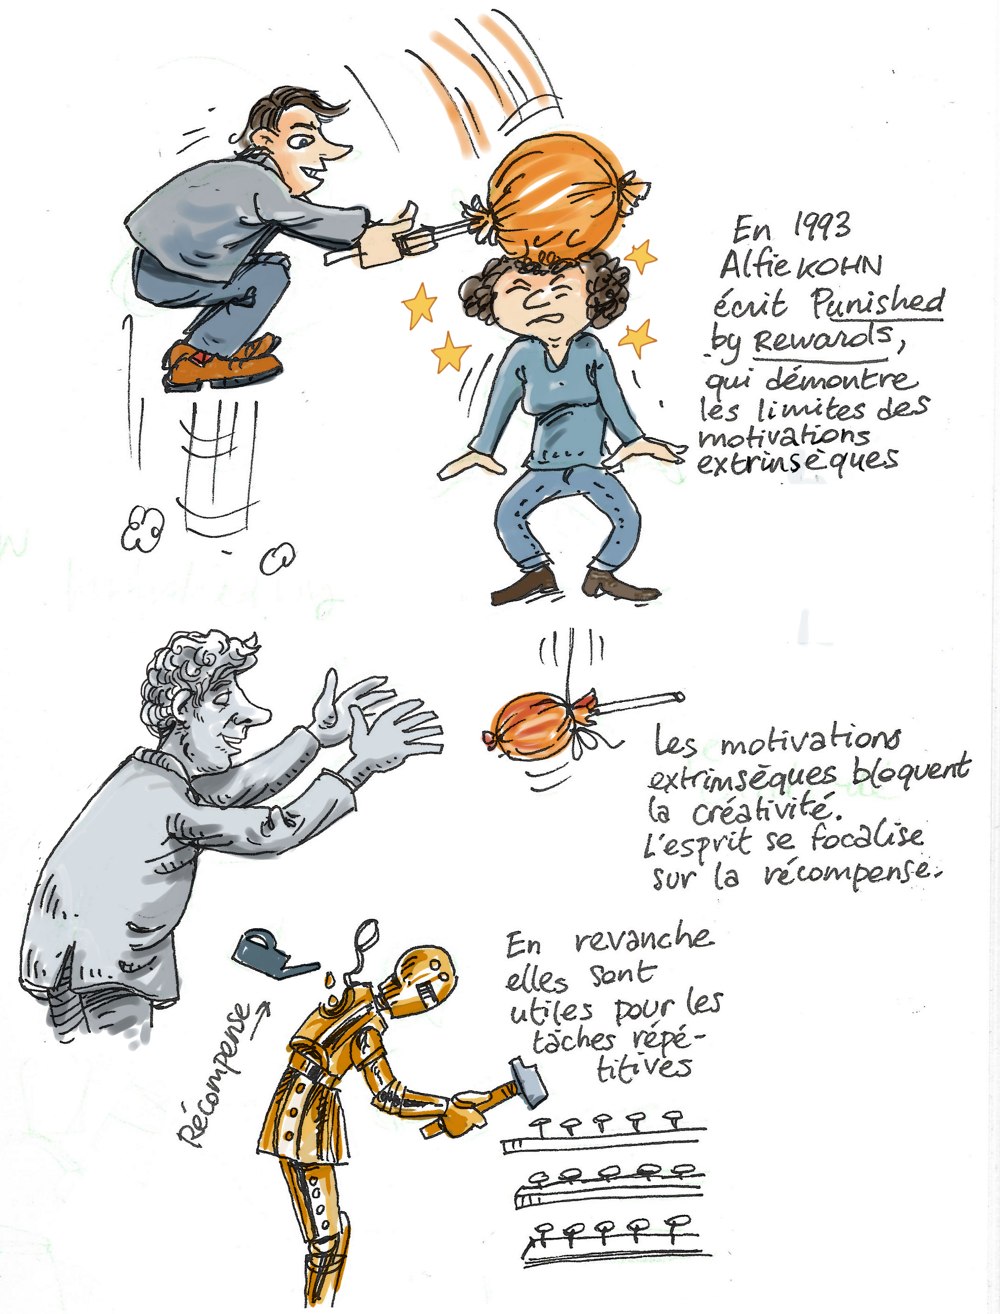 En 1993
Alfie KOHN
écrit Punished
by Rewards,
qui démontre
les limites des
motivations
extrinsèques
Les motivations
extrinsèques bloquent
la créativité.
L'esprit se focalise
sur la récompense.
En revanche
elles sont
utiles pour les
tâches répé-
titives
Récompense